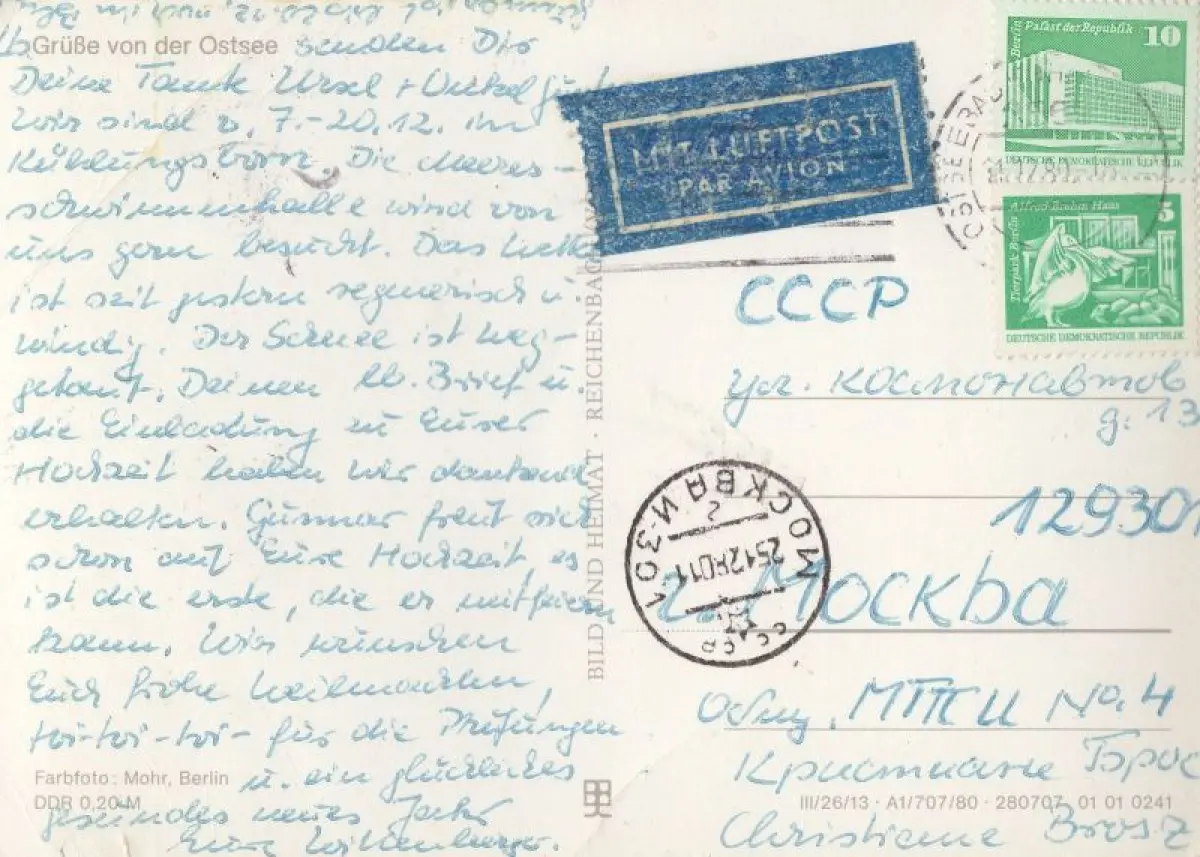 Grüße von der Ostsee
lb. senden Dir
Deine Tante Ursel + Onkel
Wir sind v. 7.-20.12. in
Kühlungsborn. Die Meeres-
schwimmhalle wird von
uns gern besucht. Das Wetter
ist seit gestern regnerisch u.
windig. Der Schnee ist weg-
getaut. Deinen lb. Brief u.
die Einladung zu Eurer
Hochzeit haben wir dankend
erhalten. Gunnar freut sich
schon auf Eure Hochzeit, es
ist die erste, die er mitfeiern
kann. Wir wünschen
Euch frohe Weihnachten,
toi-toi-toi- für die Prüfungen
u. ein glückliches
gesundes neues Jahr
Eure
Farbfoto: Mohr, Berlin
DDR 0,20 M
BILD UND HEIMAT · REICHENBACH
MIT LUFTPOST
PAR AVION
Berlin Palast der Republik
10
DEUTSCHE DEMOKRATISCHE REPUBLIK
Tierpark Berlin
Alfred Brehm Haus
5
DEUTSCHE DEMOKRATISCHE REPUBLIK
OSTSEEBAD
СССР
ул. космонавтов
д. 13
12930
г. Москва
МОСКВА И-301
2
25128011
СССР
Общ. МТТИ No. 4
Кристиане Брос
Christiane Brosz
III/26/13 · A1/707/80 · 280707 01 01 0241